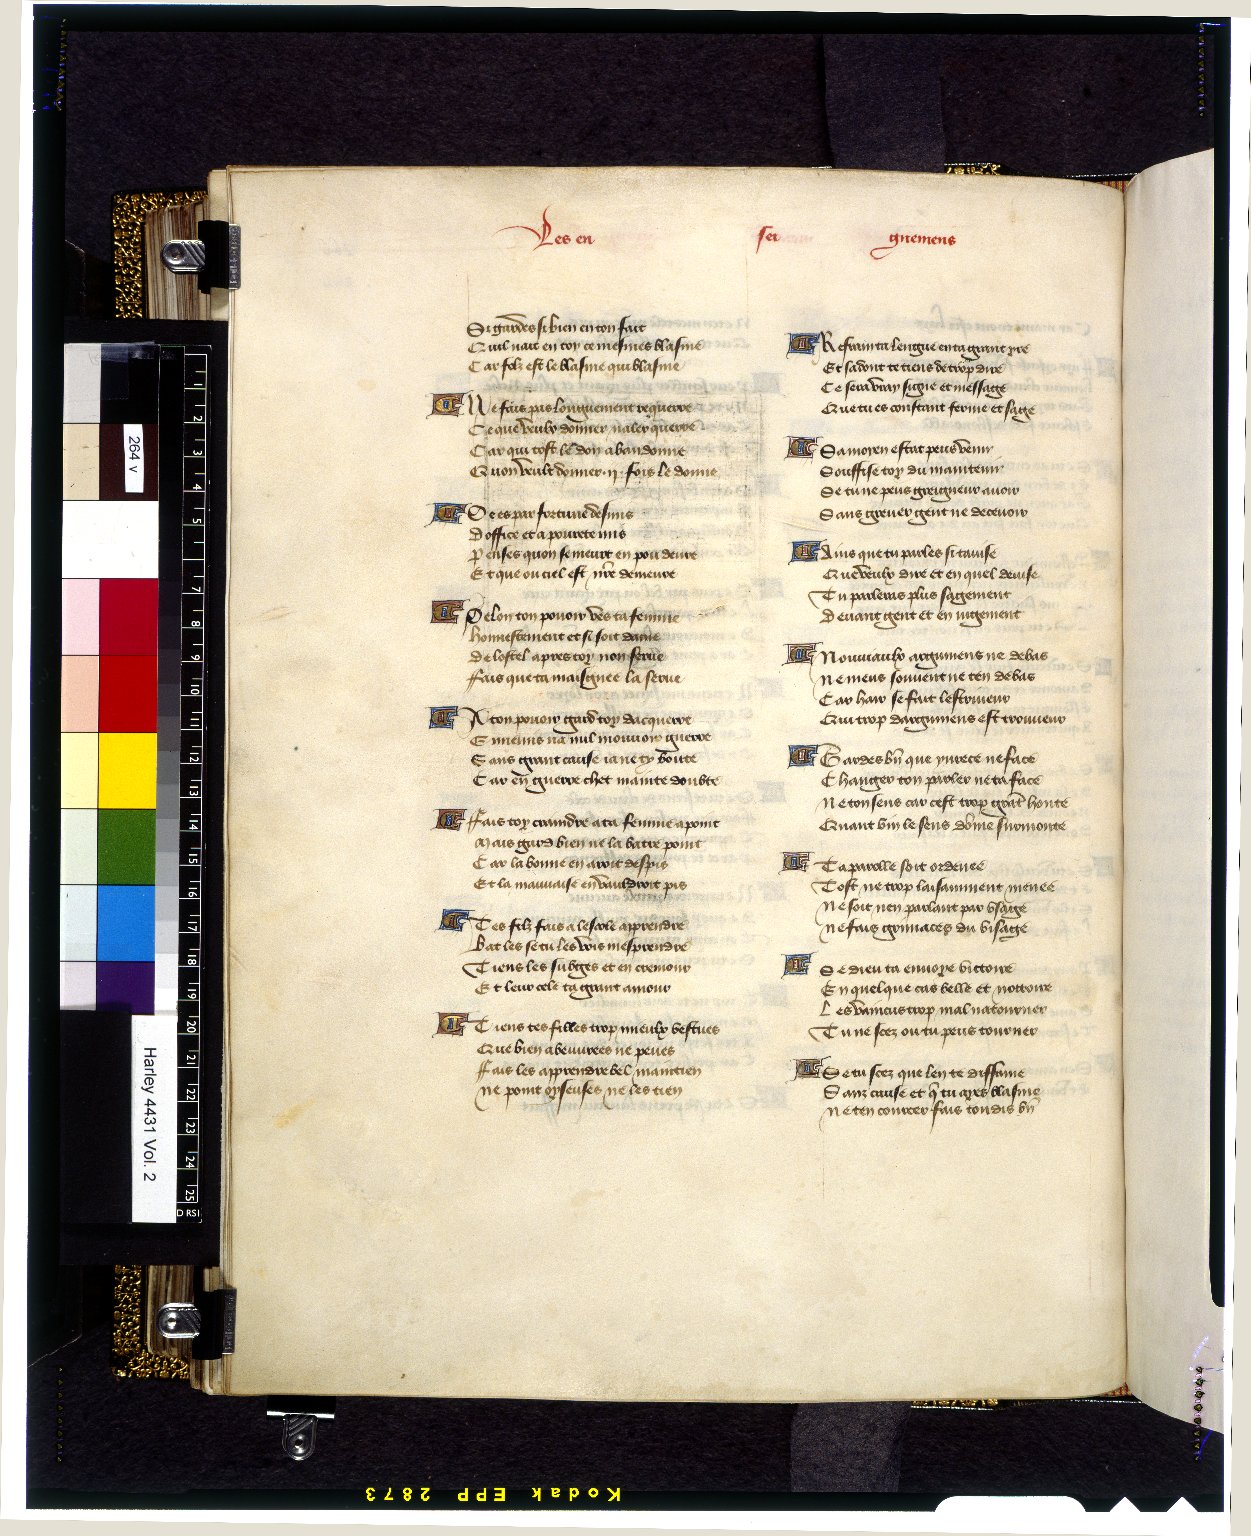 Les en sei gnemens
Si gardes si bien en ton fait
Quil nait en toy ce mesmes blasme
Car folz est le blasme qui blasme
Ne fais pas longuement requerre
Ce que veulx donner naler querre
Car qui tost le don abandonne
Quon veult donner .ij. fois le donne
Se es par fortune desmis
Doffice et a pourete mis
Penses quon se meurt en pou deure
Et que ou ciel est nre demeure
Selon ton pouoir vers ta femme
honnestement et si soit dame
De lostel apres toy non serue
Fais que ta maisgnee la serue
A ton pouoir gard toy dacquerre
Ennemis na nul mouuoir guerre
Sans grant cause ia ne ty boute
Car en guerre chet mainte doubte
Fais toy craindre a ta femme a point
Mais gard bien ne la batre point
Car la bonne en aroit despis
Et la mauuaise en vauldroit pis
Tes filz fais a lescole apprendre
Bat les se tu les vois mesprendre
Tiens les subges et en cremour
Et leur cele ta grant amour
Tiens tes filles trop mieulx vestues
Que bien abeuurees ne peues
Fais les apprendre bel maintien
ne point oyseuses ne les tien
Refrain ta lengue en ta grant yre
Et sadont te tiens de trop dire
Ce sera vray signe et message
Que tu es constant ferme et sage
Sa moyen estat peus venir
Souffise toy du maintenir
Se tu ne peus greigneur auoir
Sans greuer gent ne deceuoir
Ains que tu parles si tauise
Que veulx dire et en quel deuise
Tu parleras plus sagement
Deuant gent et en iugement
Nouuiaulx argumens ne debas
Ne meus souuent ne ten debas
Car hair se fait lestriueur
Qui trop dargumens est trouueur
Gardes bn que yurece ne face
Changer ton parler ne ta face
Ne ton sens car cest trop grat honte
Quant vin le sens dome surmonte
Ta parolle soit ordenee
Tost ne trop laisamment menee
Ne soit nen parlant par vsage
ne fais grimaces du visage
Se dieu ta enuoye victoire
En quelque cas belle et nottoire
Les vaincus trop mal natourner
Tu ne scez ou tu peus tourner
Se tu scez que len te diffame
Sanz cause et q tu ayes blasme
Ne ten courcer fais tousdis bn
264 v
Harley 4431 Vol. 2
Kodak EPP 2873